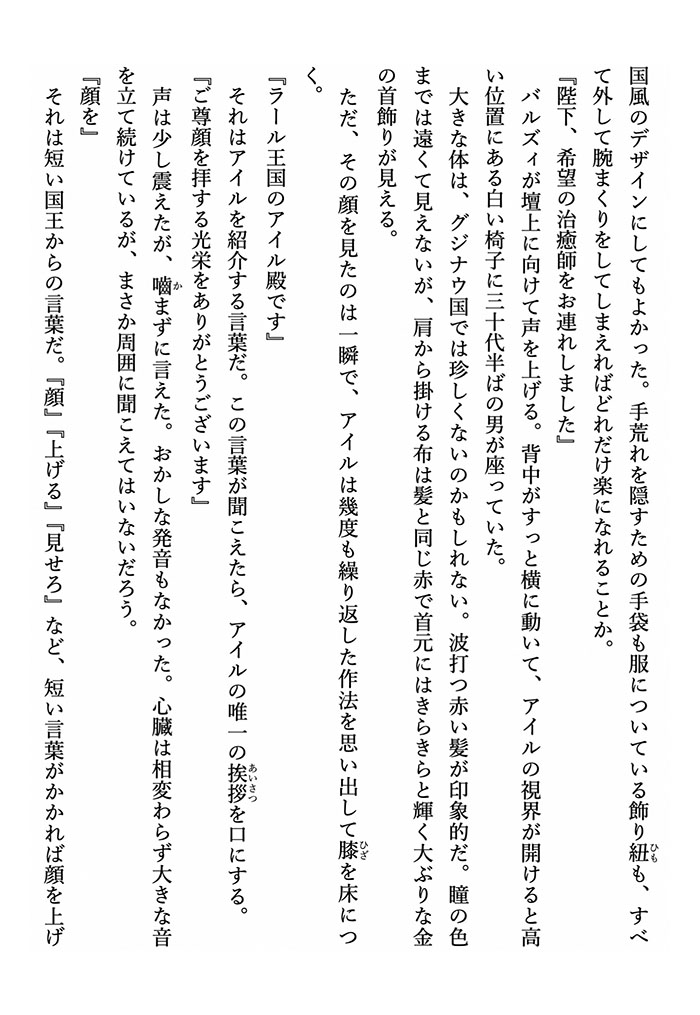 国風のデザインにしてもよかった。手荒れを隠すための手袋も服についている飾り紐も、すべ
て外して腕まくりをしてしまえればどれだけ楽になれることか。
『陛下、希望の治癒師をお連れしました』
　バルズィが壇上に向けて声を上げる。背中がすっと横に動いて、アイルの視界が開けると高
い位置にある白い椅子に三十代半ばの男が座っていた。
　大きな体は、グジナウ国では珍しくないのかもしれない。波打つ赤い髪が印象的だ。瞳の色
までは遠くて見えないが、肩から掛ける布は髪と同じ赤で首元にはきらきらと輝く大ぶりな金
の首飾りが見える。
　ただ、その顔を見たのは一瞬で、アイルは幾度も繰り返した作法を思い出して膝を床につ
く。
『ラール王国のアイル殿です』
　それはアイルを紹介する言葉だ。この言葉が聞こえたら、アイルの唯一の挨拶を口にする。
『ご尊顔を拝する光栄をありがとうございます』
　声は少し震えたが、嚙まずに言えた。おかしな発音もなかった。心臓は相変わらず大きな音
を立て続けているが、まさか周囲に聞こえてはいないだろう。
『顔を』
　それは短い国王からの言葉だ。『顔』『上げる』『見せろ』など、短い言葉がかかれば顔を上げ